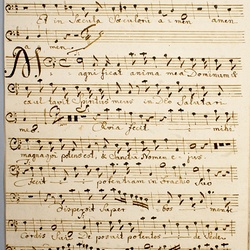 Et in Sæcula Sæculorũ a men amen
a men.
Magnificat anima mea Dominum &
exultavit Spiritus meus in Deo Salutari
meo. Quia fecit mihi
magna qui potens est, & Sanctũ Nomen e jus
fecit potentiam in brachio Suo
Dispersit Super bos mente
Cordis Sui De posuit potentes de Sede